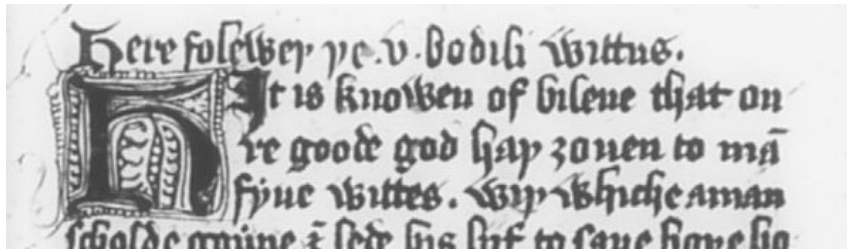 Here foleweþ þe .v. bodili wittus.
HIt is knowen of bileue that ou
re goode god haþ ȝouen to mā
fyue wittes. wiþ whiche a man
scholde lede his lif to saue boþe bo